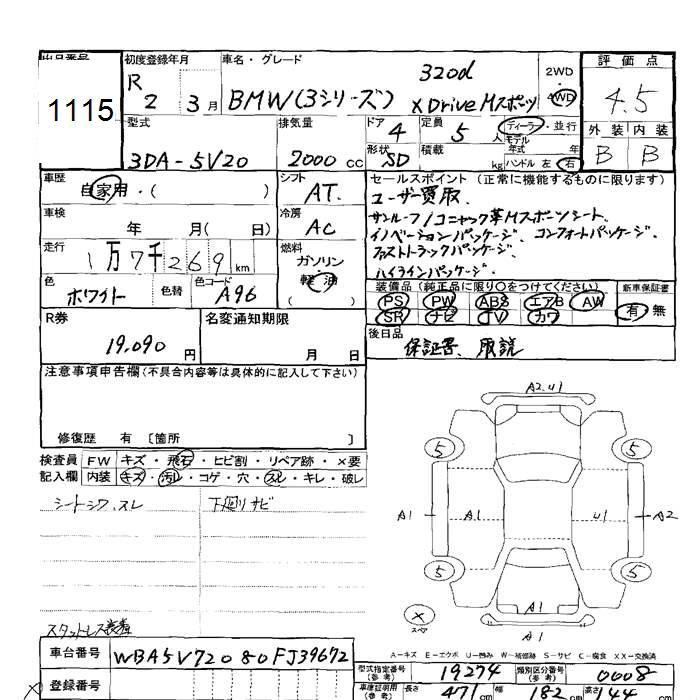 出品番号 初度登録年月 車名・グレード 評価点
1115 R 2 3月 BMW(3シリーズ) 320d xDrive Mスポーツ 2WD 4WD 4.5
型式 排気量 ドア 4 定員 5 人 ディーラー・並行 外装 内装
3DA-5V20 2000 cc 形状 SD 積載 kg モデル年式 年 ハンドル 左 右 B B
車歴 自家用・( ) シフト AT. セールスポイント (正常に機能するものに限ります)
ユーザー買取、
車検 年 月( 日) 冷房 AC サンルーフ/コニャック革Mスポーツシート、
イノベーションパッケージ、コンフォートパッケージ、
走行 1万7千269km 燃料 ガソリン 軽油 ファストトラックパッケージ、
ハイラインパッケージ、
色 ホワイト 色替 色コード A96 装備品 (純正品に限り〇をつけてください) 新車保証書
PS PW ABS エアB AW 有・無
SR ナビ TV カワ
R券 19,090円 名変通知期限 月 日 後日品
保証書、取説
注意事項申告欄(不具合内容等は具体的に記入して下さい)
修復歴 有 〔箇所 〕
検査員 FW キズ・飛石・ヒビ割・リペア跡・×要
記入欄 内装 キズ・汚レ・コゲ・穴・スレ・キレ・破レ
シートシワ、スレ 下廻りサビ
スタットレス装着
A2.U1
5 5
A1 A1 U1 A2
5 5
A1
× スペア A1
A-キズ E-エクボ U-凹み W-補修跡 S-サビ C-腐食 XX-交換済
車台番号 WBA5V72080FJ39672 型式指定番号(参考) 19274 類別区分番号(参考) 0008
登録番号 車庫証明用(参考) 長さ 471cm 幅 182cm 高さ 144cm